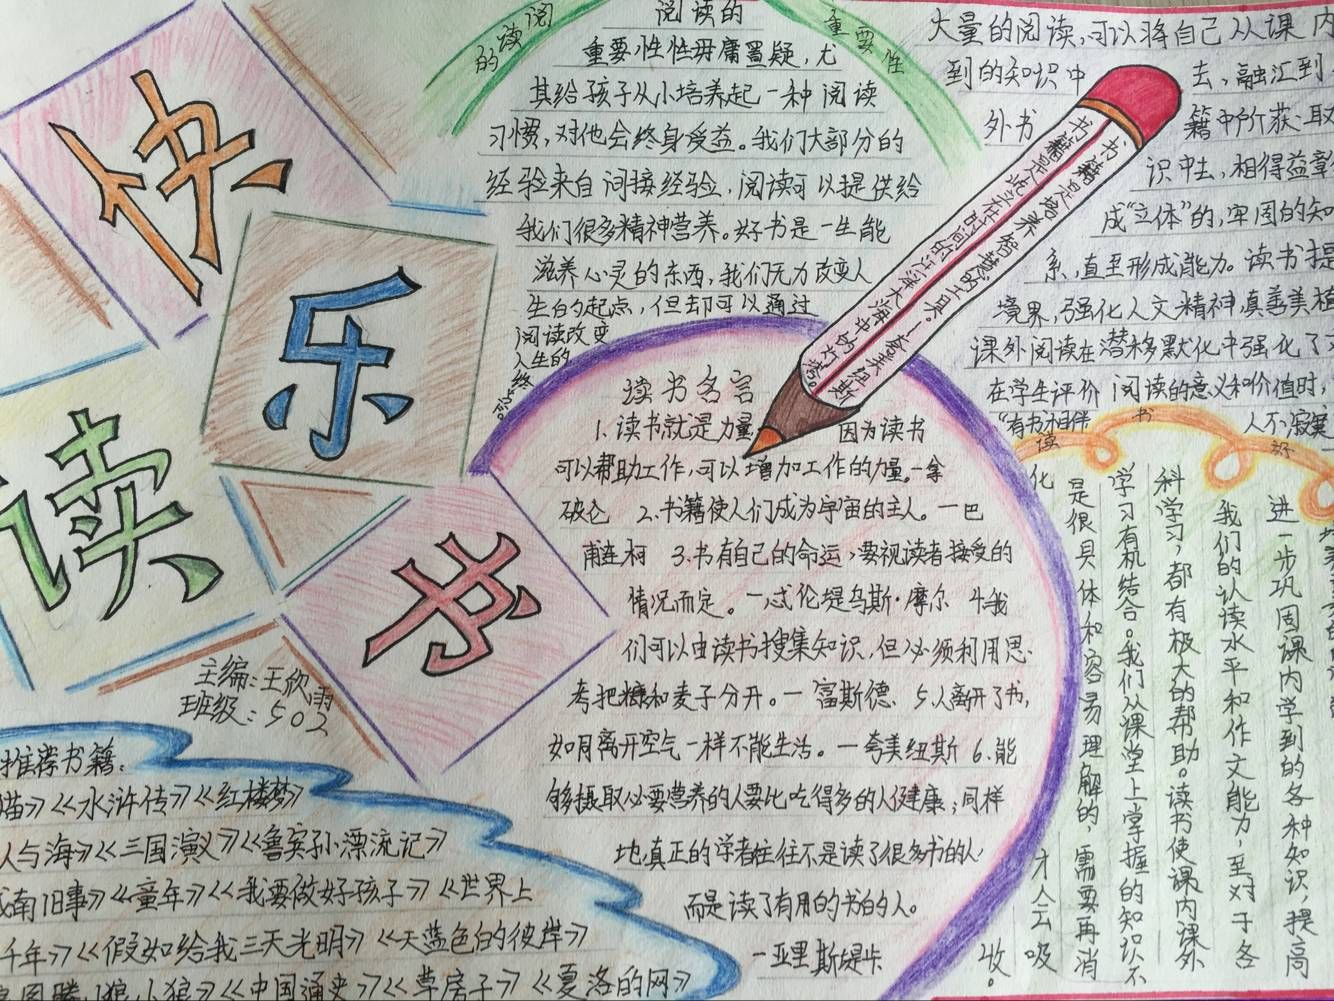 快
乐
读
书
主编:王欣雨
班级:502
阅读的
重要性
阅读的
重要性性毋庸置疑，尤
其给孩子从小培养起一种阅读
习惯，对他会终身受益。我们大部分的
经验来自间接经验，阅读可以提供给
我们很多精神营养。好书是一生能
滋养心灵的东西，我们无力改变人
生的起点，但却可以通过
阅读改变
人生的
终点。
大量的阅读，可以将自己从课内
到的知识中去，融汇到
外书籍中所获取
识中去，相得益彰
成“立体”的，牢固的知
系，直至形成能力。读书提
境界，强化人文精神，真善美植
课外阅读在潜移默化中强化了
在学生评价阅读的意义和价值时，
“有书相伴人不寂寞
书籍是培养智慧的工具。—夸美纽斯
书籍是屹立在时间的汪洋大海中的灯塔。
读书名言
1.读书就是力量因为读书
可以帮助工作，可以增加工作的力量。—拿
破仑 2.书籍使人们成为宇宙的主人。—巴
甫连柯 3.书有自己的命运，要视读者接受的
情况而定。—忒伦提乌斯·摩尔 4我
们可以由读书搜集知识，但必须利用思
考把糠和麦子分开。—富斯德. 5.人离开了书，
如同离开空气一样不能生活。—夸美纽斯 6.能
够摄取必要营养的人要比吃得多的人健康；同样
地真正的学者往往不是读了很多书的人
而是读了有用的书的人。
—亚里斯提卡
读书好
进一步巩固课内学到的各种知识，提高
我们的认读水平和作文能力，至对于各
科学习，都有极大的帮助。读书使课内课外
学习有机结合。我们从课堂上掌握的知识不
是很具体和容易理解的，需要再消
化才会吸
收。
推荐书籍：
猫》《水浒传》《红楼梦》
人与海》《三国演义》《鲁宾孙漂流记》
城南旧事》《童年》《我要做好孩子》《世界上
千年》《假如给我三天光明》《天蓝色的彼岸》
狼图腾，小狼小狼》《中国通史》《草房子》《夏洛的网》